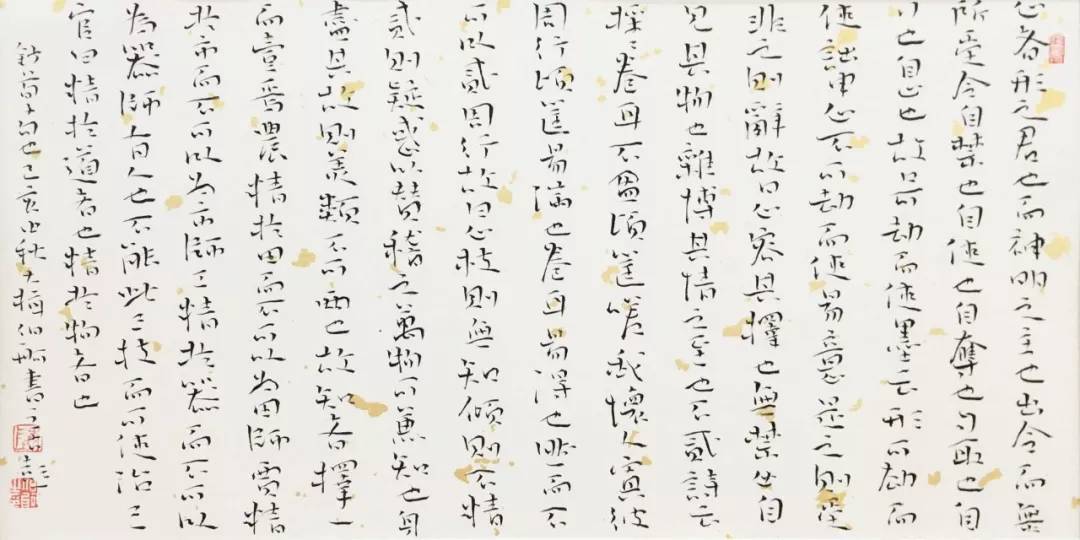 心者形之君也而神明之主也出令而無
所受令自禁也自使也自奪也自取也自
行也自止也故口可劫而使墨云形可劫而
使詘申心不可劫而使易意是之則受
非之則辭故曰心容其擇也無禁必自
見其物也雜博其情之至也不貳詩云
採々卷耳不盈頃筐嗟我懷人寘彼
周行頃筐易滿也卷耳易得也然而不
可以貳周行故曰心枝則無知傾則不精
貳則疑惑以贊稽之萬物可兼知也身
盡其故則美類不可兩也故知者擇一
而壹焉農精於田而不可以為田師賈精
於市而不可以為市師工精於器而不可以
為器師有人也不能此三技而可使治三
官曰精於道者也精於物者也
鈔荀子句也己亥中秋大梅書